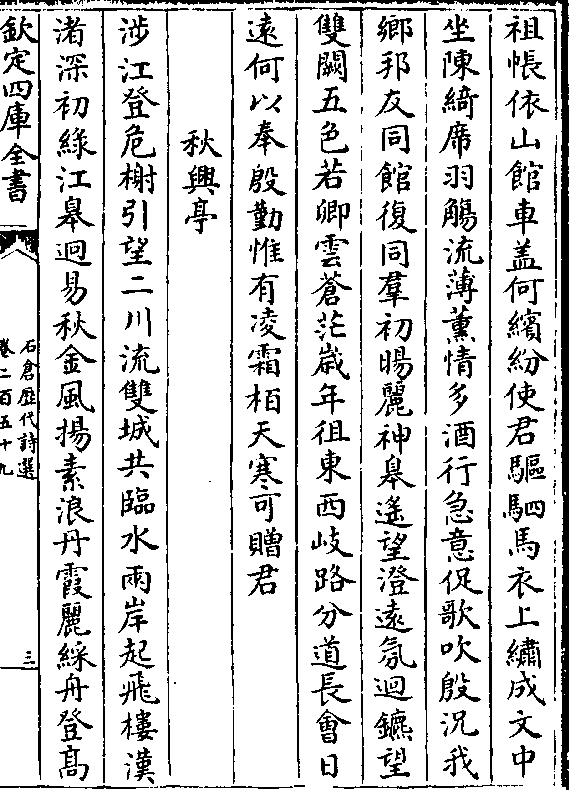 祖帳依山館車盖何繽紛使君驅駟馬衣上繡成文中
坐陳綺席羽觴流薄薰情多酒行急意促歌吹殷況我
鄉邦友同館復同羣初暘麗神臯遙望澄遠氛迴鑣望
雙闕五色若卿雲蒼茫歳年徂東西岐路分道長會日
遠何以奉殷勤惟有凌霜柏天寒可贈君
秋興亭
涉江登危榭引望二川流雙城共臨水兩岸起飛樓漢
渚深初綠江皋迥易秋金風揚素浪丹霞麗綵舟登高
欽定四庫全書
石倉歷代詩選
卷二百五十九
三